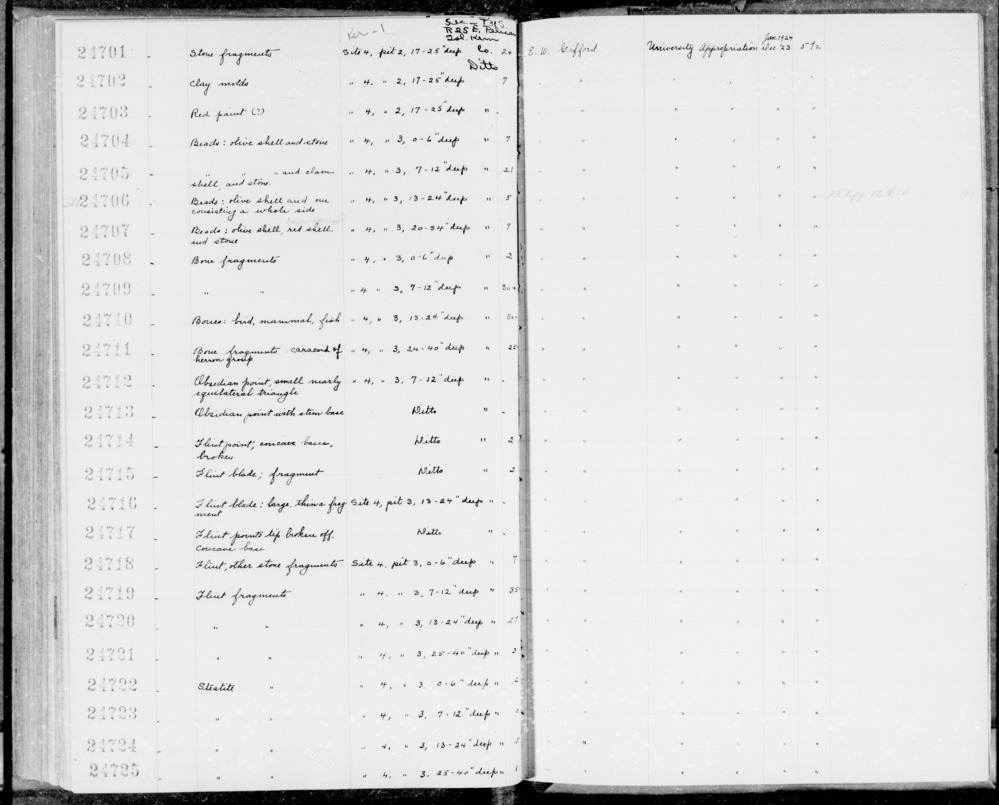 Ker-1
Sec T
R 25 E,
Co.
24701 Stone fragments Site 4, pit 2, 17-25" deep 24 E. W. Gifford University Appropriation Jan. 1924 Dec '23
Ditto
24702 Clay molds " 4, " 2, 17-25" deep 7 " " " " "
24703 Red paint (?) " 4, " 2, 17-25" deep " - " " " " "
24704 Beads: olive shell and stone " 4, " 3, 0-6" deep " 7 " " " " "
24705 " " " and clam " 4, " 3, 7-12" deep " 21 " " " " "
shell, and stone.
24706 Beads: olive shell and one " 4, " 3, 13-24" deep " 5 " " " " "
consisting a whole side
24707 Beads: olive shell, red shell " 4, " 3, 20-34" deep " 9 " " " " "
and stone
24708 Bone fragments " 4, " 3, 0-6" deep " 2 " " " " "
24709 " " " 4 " 3, 7-12" deep " 30+ " " " " "
24710 Bones: bird, mammal, fish " 4, " 3, 13-24" deep " " " " " "
24711 Bone fragments caracoid of " 4, " 3, 24-40" deep " 25 " " " " "
herron group
24712 Obsidian point, small nearly " 4, " 3, 7-12" deep " - " " " " "
equilateral triangle
24713 Obsidian point with stem base Ditto " - " " " " "
24714 Flint point, concave base, Ditto " 2 " " " " "
broken
24715 Flint blade; fragment Ditto " 2 " " " " "
24716 Flint blade: large, thin a frag Site 4, pit 3, 13-24" deep " - " " " " "
ment
24717 Flint points tip broken off. Ditto " - " " " " "
Concave base
24718 Flint, other stone fragments Site 4, pit 3, 0-6" deep " 7 " " " " "
24719 Flint fragments " 4, " 3, 7-12" deep " 35 " " " " "
24720 " " " 4, " 3, 13-24" deep " 27 " " " " "
24721 " " " 4, " 3, 25-40" deep " 3 " " " " "
24722 Steatite " " 4, " 3, 0-6" deep " 2 " " " " "
24723 " " " 4, " 3, 7-12" deep " " " " " "
24724 " " " 4, " 3, 13-24" deep " 5 " " " " "
24725 " " " 4, " 3, 25-40" deep " 1 " " " " "